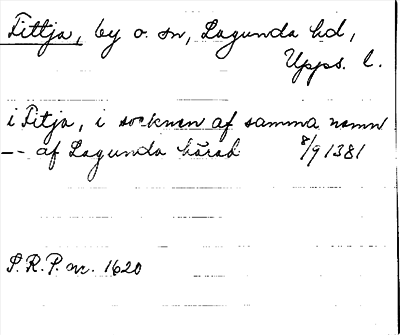 Tittja, by o. sn, Lagunda hd,
Upps. l.
i Titja, i socknen af samma namn
-- af Lagunda härad 8/9 1381
S.R.P. nr. 1620